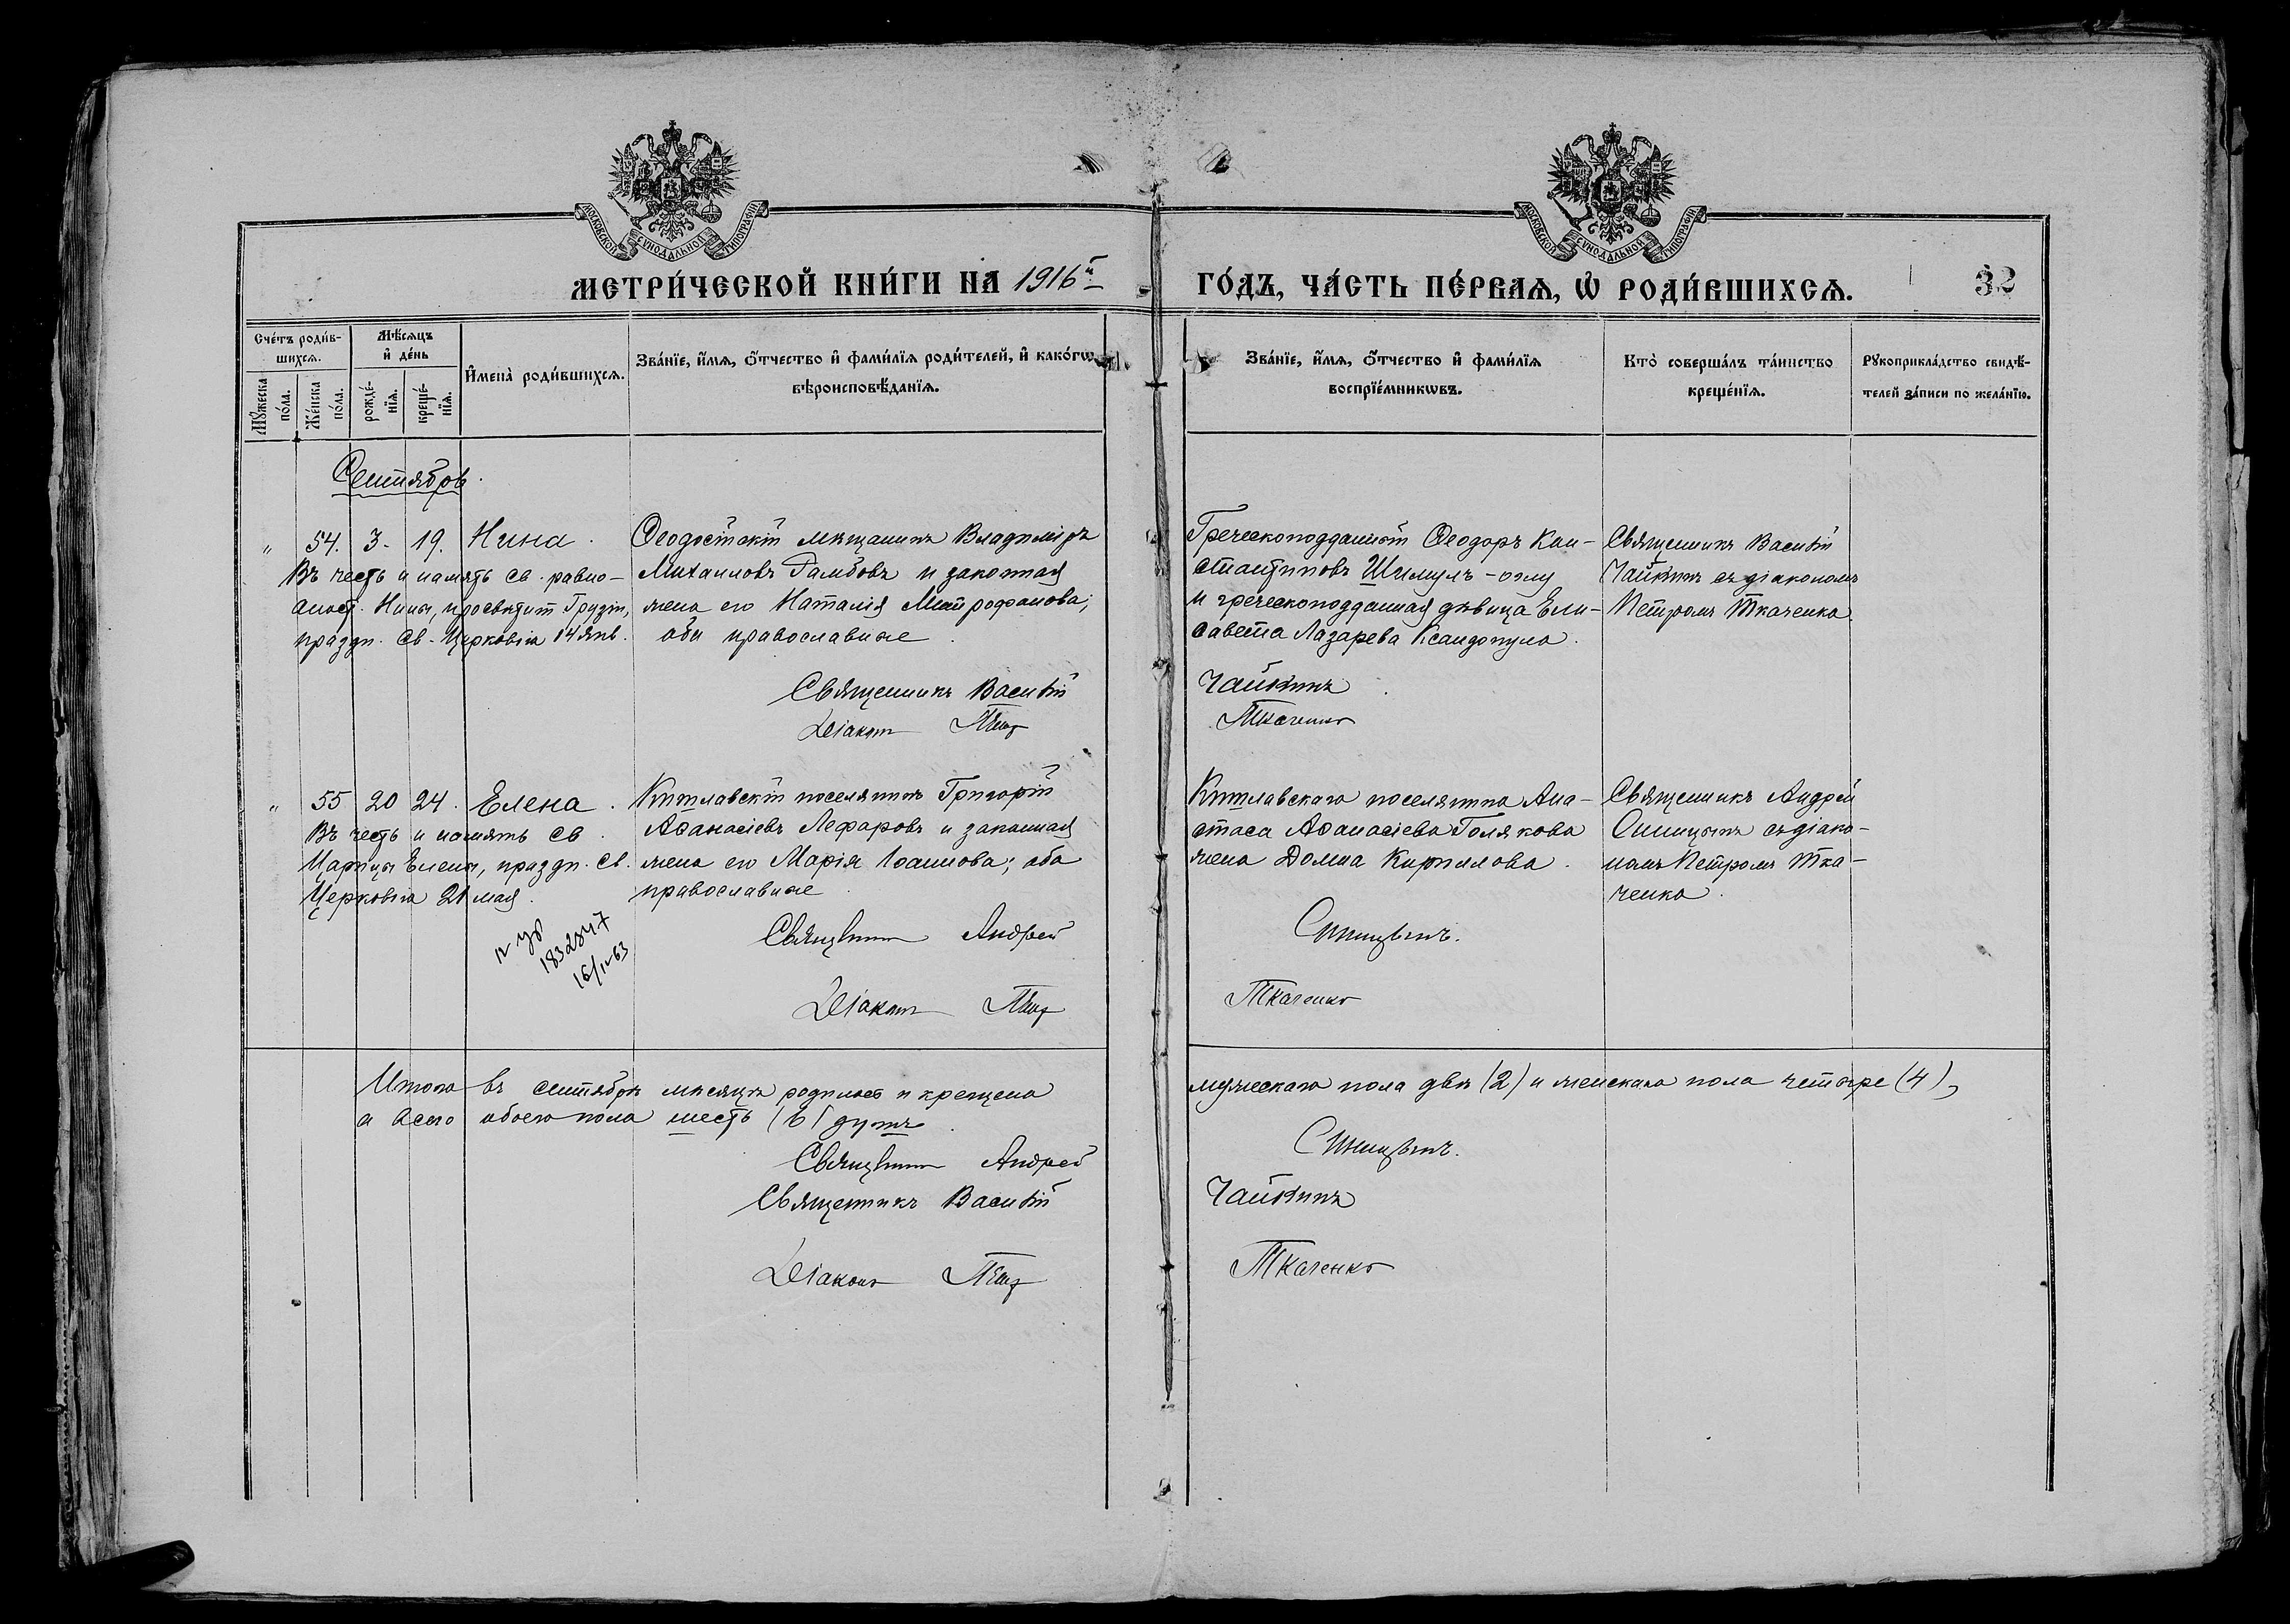 МОСКОВСКОЙ СѴНОДАЛЬНОЙ ТИПОГРАФІИ
МОСКОВСКОЙ СѴНОДАЛЬНОЙ ТИПОГРАФІИ
МЕТРИ́ЧЕСКОЙ КНИ́ГИ НА 1916й
ГО́ДЪ, ЧА́СТЬ ПЕ́РВАѦ, Ѡ РОДИ́ВШИХСѦ.
32
Сче́тъ роди́в-
шихсѧ.
Мꙋ́жеска по́ла.
Же́нска по́ла.
Мѣ́сѧцъ
и҆ де́нь
рожде́-
нїѧ.
креще́-
нїѧ.
И҆мена̀ роди́вшихсѧ.
Зва́нїе, и҆́мѧ, ѻ҆́тчество и҆ фами́лїѧ роди́телей, и҆ како́гѡ
вѣроисповѣ́данїѧ.
Зва́нїе, и҆́мѧ, ѻ҆́тчество и҆ фами́лїѧ
воспрїе́мникѡвъ.
Кто̀ соверша́лъ та́инство
креще́нїѧ.
Рꙋкоприкла́дство свидѣ́-
телей за́писи по жела́нїю.
Сентябрь.
" 54. 3. 19. Нина.
Въ честь и память св. равно-
апост. Нины, просвѣтит. Грузіи,
праздн. св. Церковію 14 янв.
Ѳеодосійскій мѣщанинъ Владиміръ
Михаиловъ Гамбовъ и законная
жена его Наталія Митрофанова;
оба православные
Священникъ Василій
Діаконъ Петр
Греческоподданный Ѳеодоръ Кон-
стантиновъ Шимулъ-оглу
и греческоподданная дѣвица Ели-
савета Лазарева Ксандопуло.
Чайкинъ
Ткаченко
Священникъ Василій
Чайкинъ съ діакономъ
Петромъ Ткаченко.
" 55 20 24. Елена.
Въ честь и память св.
Царицы Елены, праздн. св.
Церковію 21 мая.
1832847
Кишлавскій поселянинъ Григорій
Аѳанасіевъ Лефаровъ и законная
жена его Марія Іоаннова; оба
православные.
Священникъ Андрей
Діаконъ Петр
Кишлавскаго поселянина Ана-
стаса Аѳанасіева Голякова
жена Домна Кириллова.
Синицынъ.
Ткаченко
Священникъ Андрей
Синицынъ съ діако-
номъ Петромъ Тка-
ченко.
Итого въ сентябрѣ мѣсяцѣ родилось и крещено
мужескаго пола два (2) и женскаго пола четыре (4),
а всего обоего пола шесть (6) душъ.
Священникъ Андрей
Синицынъ.
Священникъ Василій
Чайкинъ
Діаконъ Петр
Ткаченко